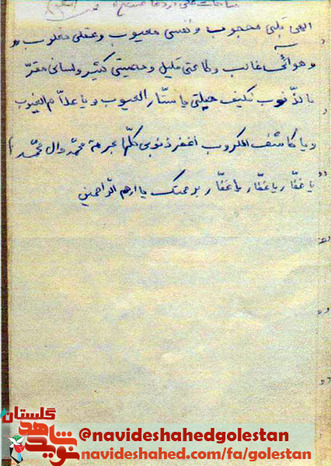 الهی قلبی محجوب و نفسی معیوب و عقلی مغلوب
و هوائی غالب و طاعتی قلیل و معصیتی کثیر و لسانی مقرّ
بالذنوب فکیف حیلتی یا ستّار العیوب و یا علّام الغیوب
و یا کاشف الکروب اغفر ذنوبی کلّها بحرمة محمّد و آل محمّد
یا غفّار یا غفّار یا غفّار برحمتک یا ارحم الرّاحمین
گلستان
نوید شاهد
@navideshahedgolestan
navideshahed.com/fa/golestan